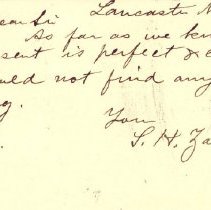 Lancaste N
ear Sir
So far as we kn
sent is perfect & c
ould not find any
g.
You
S. H. Za